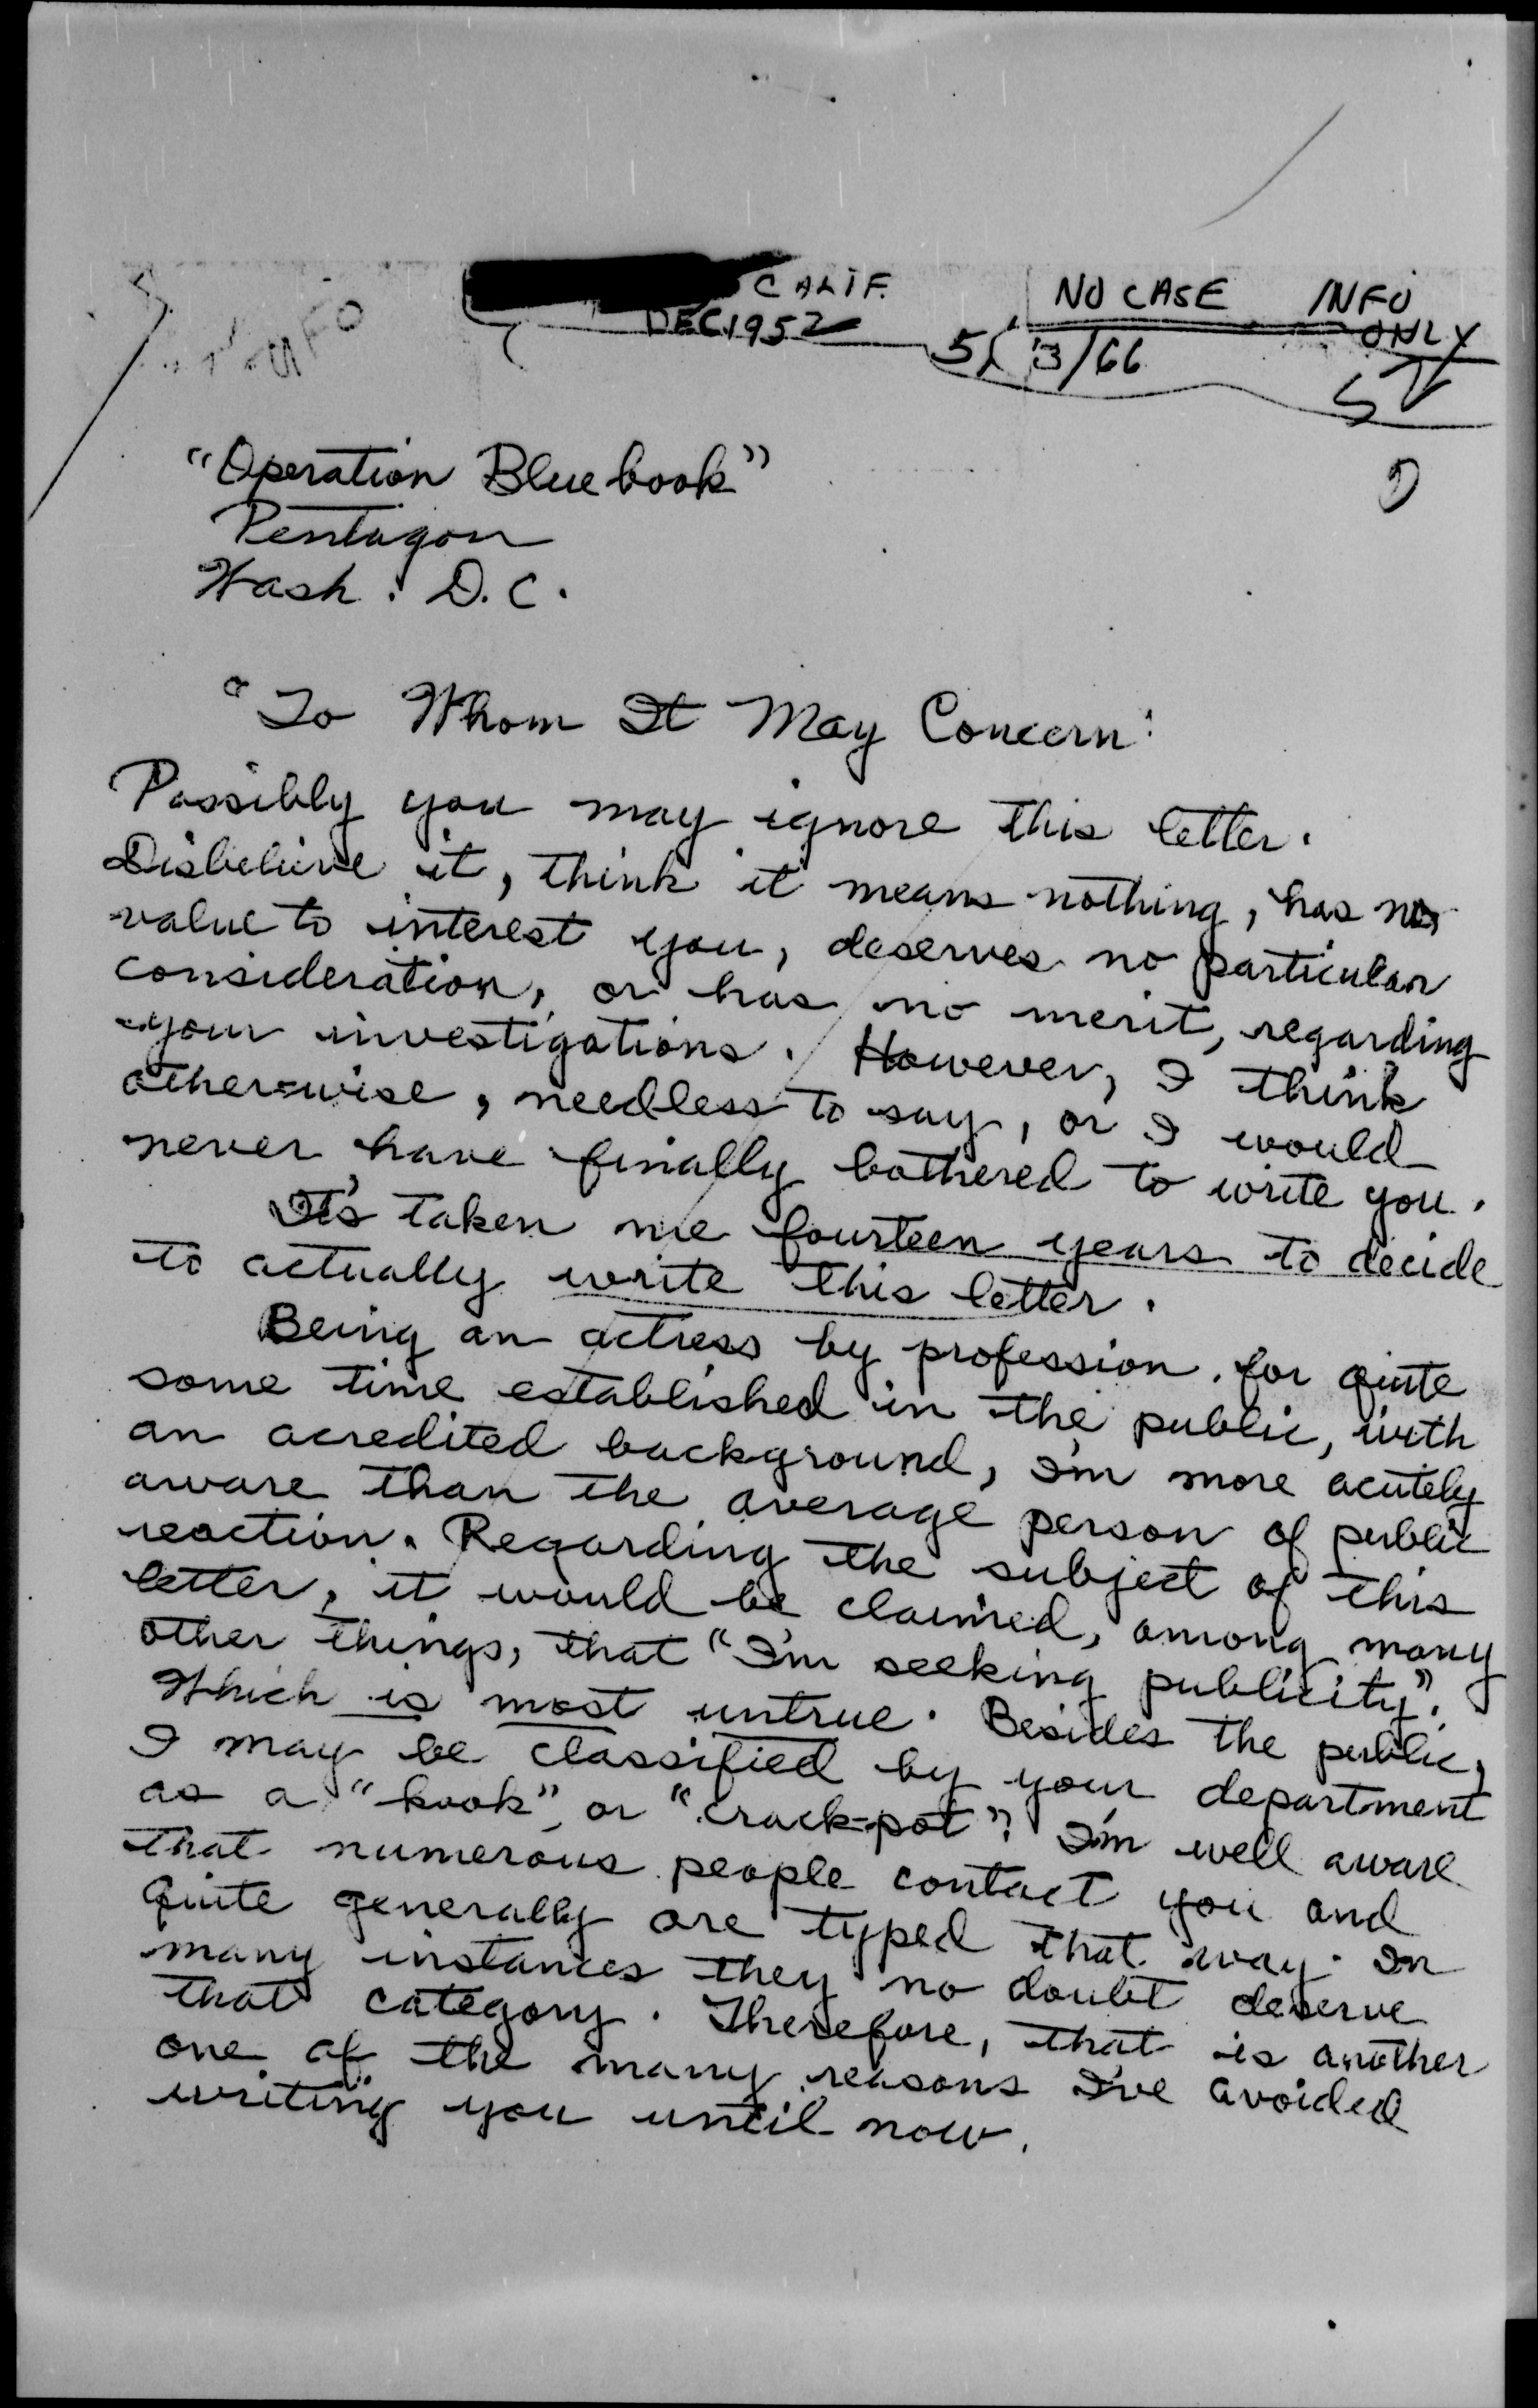 CALIF.
DEC 1952
NO CASE INFO
ONLY
5/ 3/66
"Operation Bluebook"
Pentagon
Wash. D.C.
"To Whom It May Concern:
Possibly you may ignore this letter.
Disbelieve it, think it means nothing, has no
value to interest you, deserves no particular
consideration, or has no merit, regarding
your investigations. However, I think
otherwise, needless to say, or I would
never have finally bothered to write you.
It's taken me fourteen years to decide
to actually write this letter.
Being an actress by profession, for quite
some time established in the public, with
an acredited background, I'm more acutely
aware than the average person of public
reaction. Regarding the subject of this
letter, it would be claimed, among many
other things, that "I'm seeking publicity".
Which is most untrue. Besides the public,
I may be classified by your department
as a "kook", or "crack-pot". I'm well aware
that numerous people contact you and
quite generally are typed that way. In
many instances they no doubt deserve
that category. Therefore, that is another
one of the many reasons I've avoided
writing you until now.